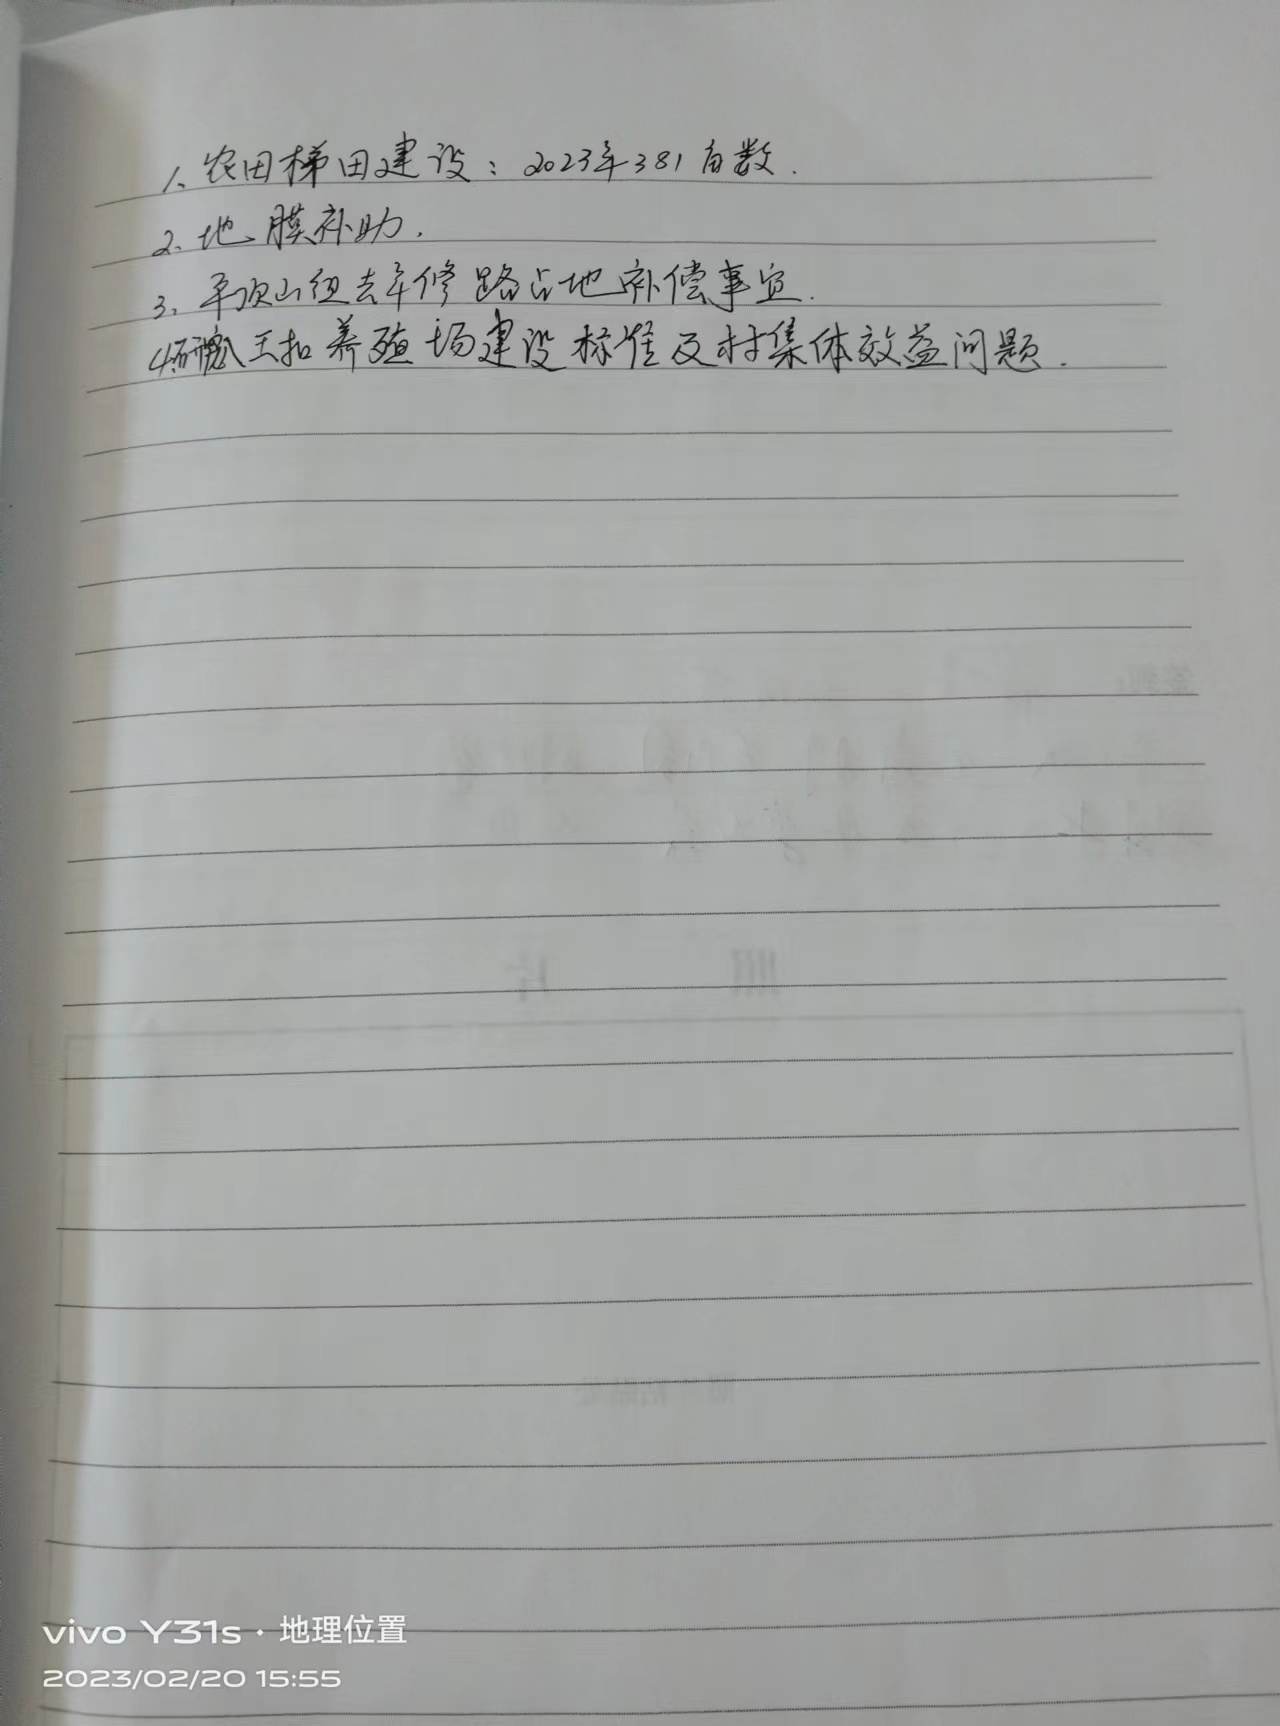 1、农田梯田建设：2023年381亩数.
2、地膜补助.
3、平顶山组去年修路占地补偿事宜.
4、王扣养殖场建设标准及村集体效益问题.
vivo Y31s · 地理位置
2023/02/20 15:55